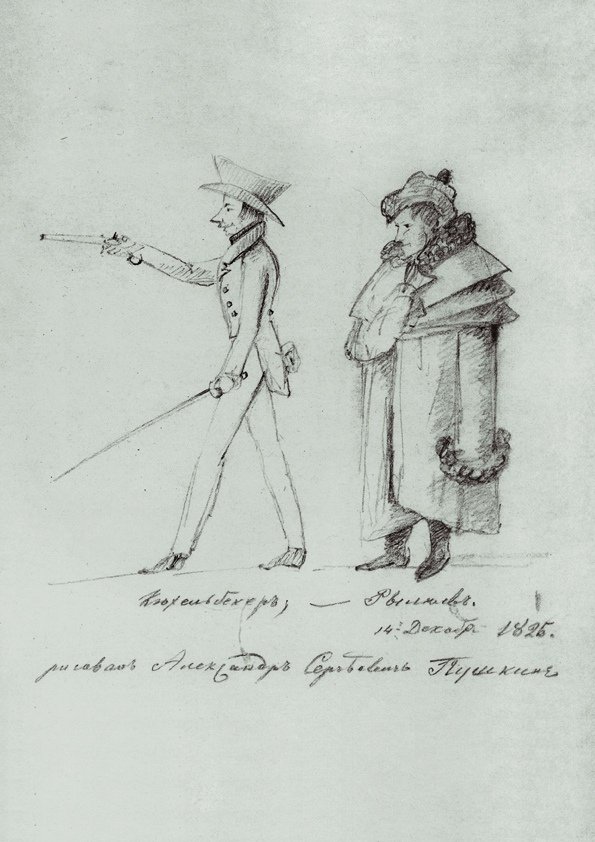 Кюхельбекеръ; — Рылѣевъ.
14ᵒ Декабр 1825.
рисовалъ Александръ Сергѣевичь Пушкинъ